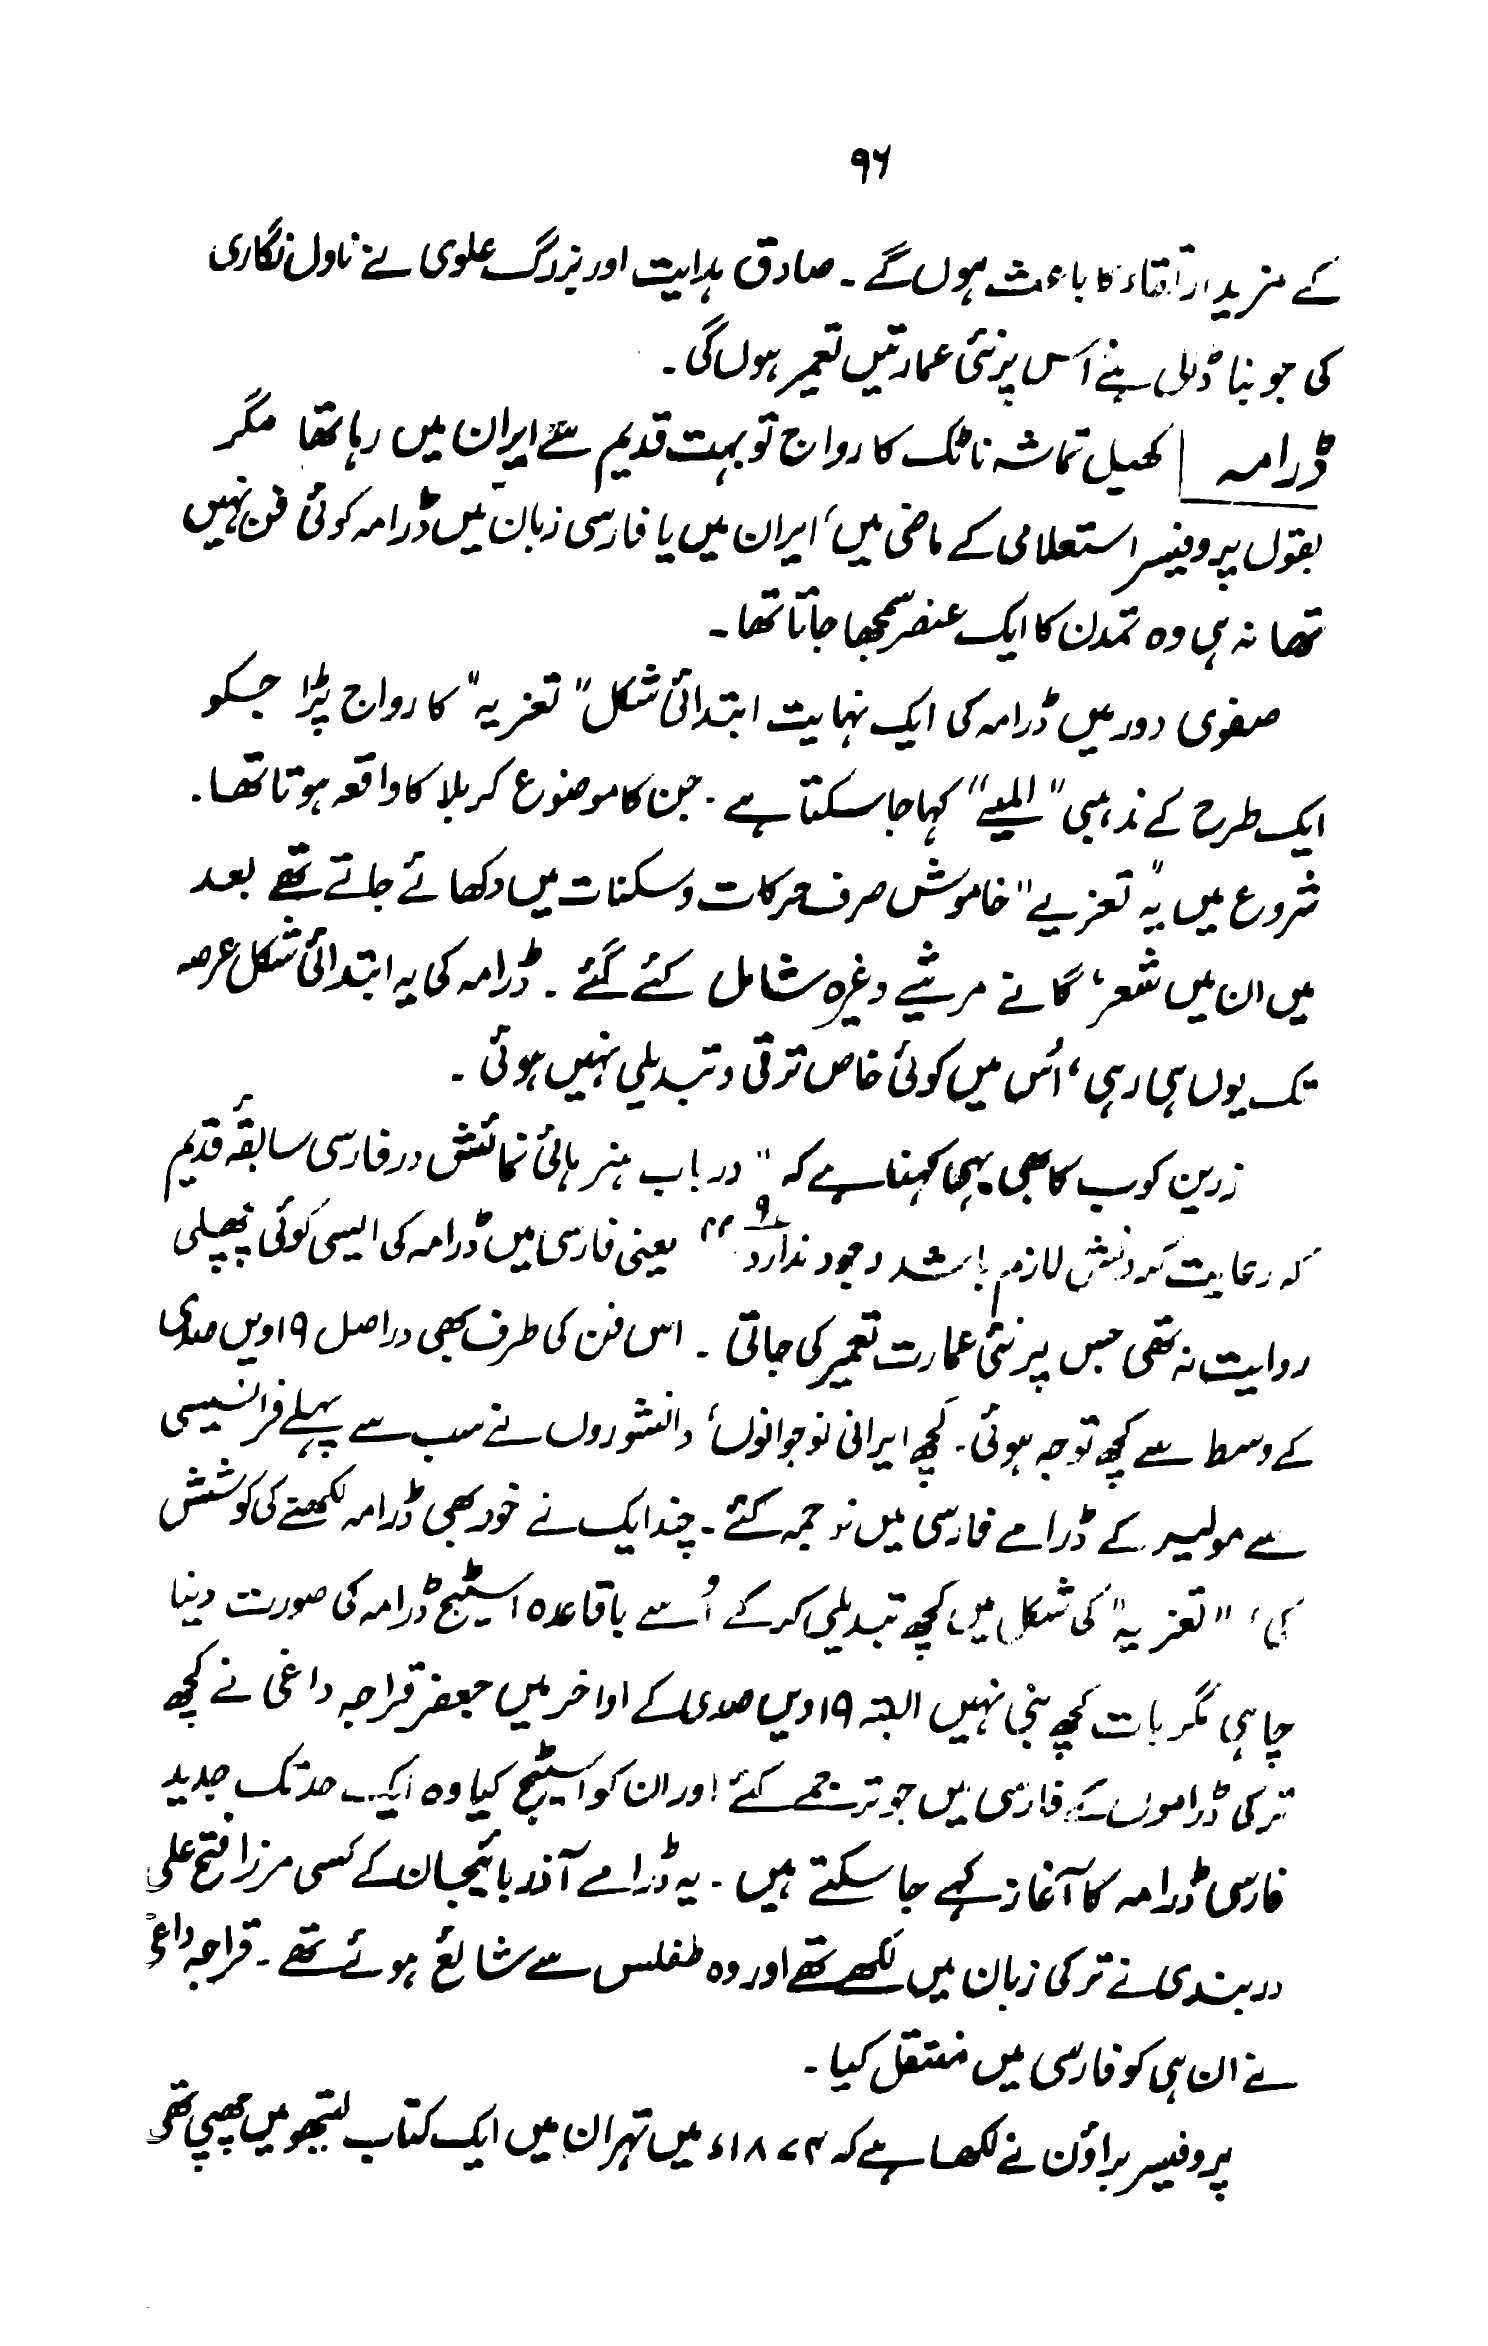 ۹۶
کے مزید ارتقاء کا باعث ہوں گے ۔ صادق ہدایت اور بزرگ علوی نے ناول نگاری
کی جو بنا ڈالی ہے اس پر نئی عمارتیں تعمیر ہوں گی ۔
ڈرامہ | کھیل تماشہ ناٹک کا رواج تو بہت قدیم سے ایران میں رہا تھا مگر
بقول پروفیسر استعلامی کے ماضی میں، ایران میں یا فارسی زبان میں ڈرامہ کوئی فن نہیں
تھا نہ ہی وہ تمدن کا ایک عنصر سمجھا جاتا تھا ۔
صفوی دور میں ڈرامہ کی ایک نہایت ابتدائی شکل "تعزیہ" کا رواج پڑا جسکو
ایک طرح کے مذہبی "المیے" کہا جا سکتا ہے ۔ جن کا موضوع کربلا کا واقعہ ہوتا تھا ۔
شروع میں یہ "تعزیے" خاموش صرف حرکات و سکنات میں دکھائے جاتے تھے بعد
میں ان میں شعر، گانے مرثیے وغیرہ شامل کئے گئے ۔ ڈرامہ کی یہ ابتدائی شکل عرصہ
تک یوں ہی رہی، اُس میں کوئی خاص ترقی و تبدیلی نہیں ہوئی ۔
زرین کوب کا بھی یہی کہنا ہے کہ "در باب ہنر ہائی نمائش در فارسی سابقۂ قدیم
کہ رعایت کردنش لازم باشد وجود ندارد" ۹ یعنی فارسی میں ڈرامہ کی ایسی کوئی پچھلی
روایت نہ تھی جس پر نئی عمارت تعمیر کی جاتی ۔ اس فن کی طرف بھی دراصل ۱۹ویں صدی
کے وسط سے کچھ توجہ ہوئی ۔ کچھ ایرانی نوجوانوں، دانشوروں نے سب سے پہلے فرانسیسی
سے مولیر کے ڈرامے فارسی میں ترجمہ کئے ۔ چند ایک نے خود بھی ڈرامہ لکھنے کی کوشش
کی، "تعزیہ" کی شکل میں کچھ تبدیلی کر کے اُسے باقاعدہ اسٹیج ڈرامہ کی صورت دینا
چاہی مگر بات کچھ بنی نہیں البتہ ۱۹ویں صدی کے اواخر میں جعفر قراجہ داغی نے کچھ
ترکی ڈراموں کے فارسی میں جو ترجمے کئے اور ان کو اسٹیج کیا وہ ایک حد تک جدید
فارسی ڈرامہ کا آغاز کہے جا سکتے ہیں ۔ یہ ڈرامے آذربائیجان کے کسی مرزا فتح علی
دربندی نے ترکی زبان میں لکھے تھے اور وہ طفلس سے شائع ہوئے تھے ۔ قراجہ داغی
نے ان ہی کو فارسی میں منتقل کیا ۔
پروفیسر براؤن نے لکھا ہے کہ ۱۸۷۴ء میں تہران میں ایک کتاب لیتھو میں چھپی تھی